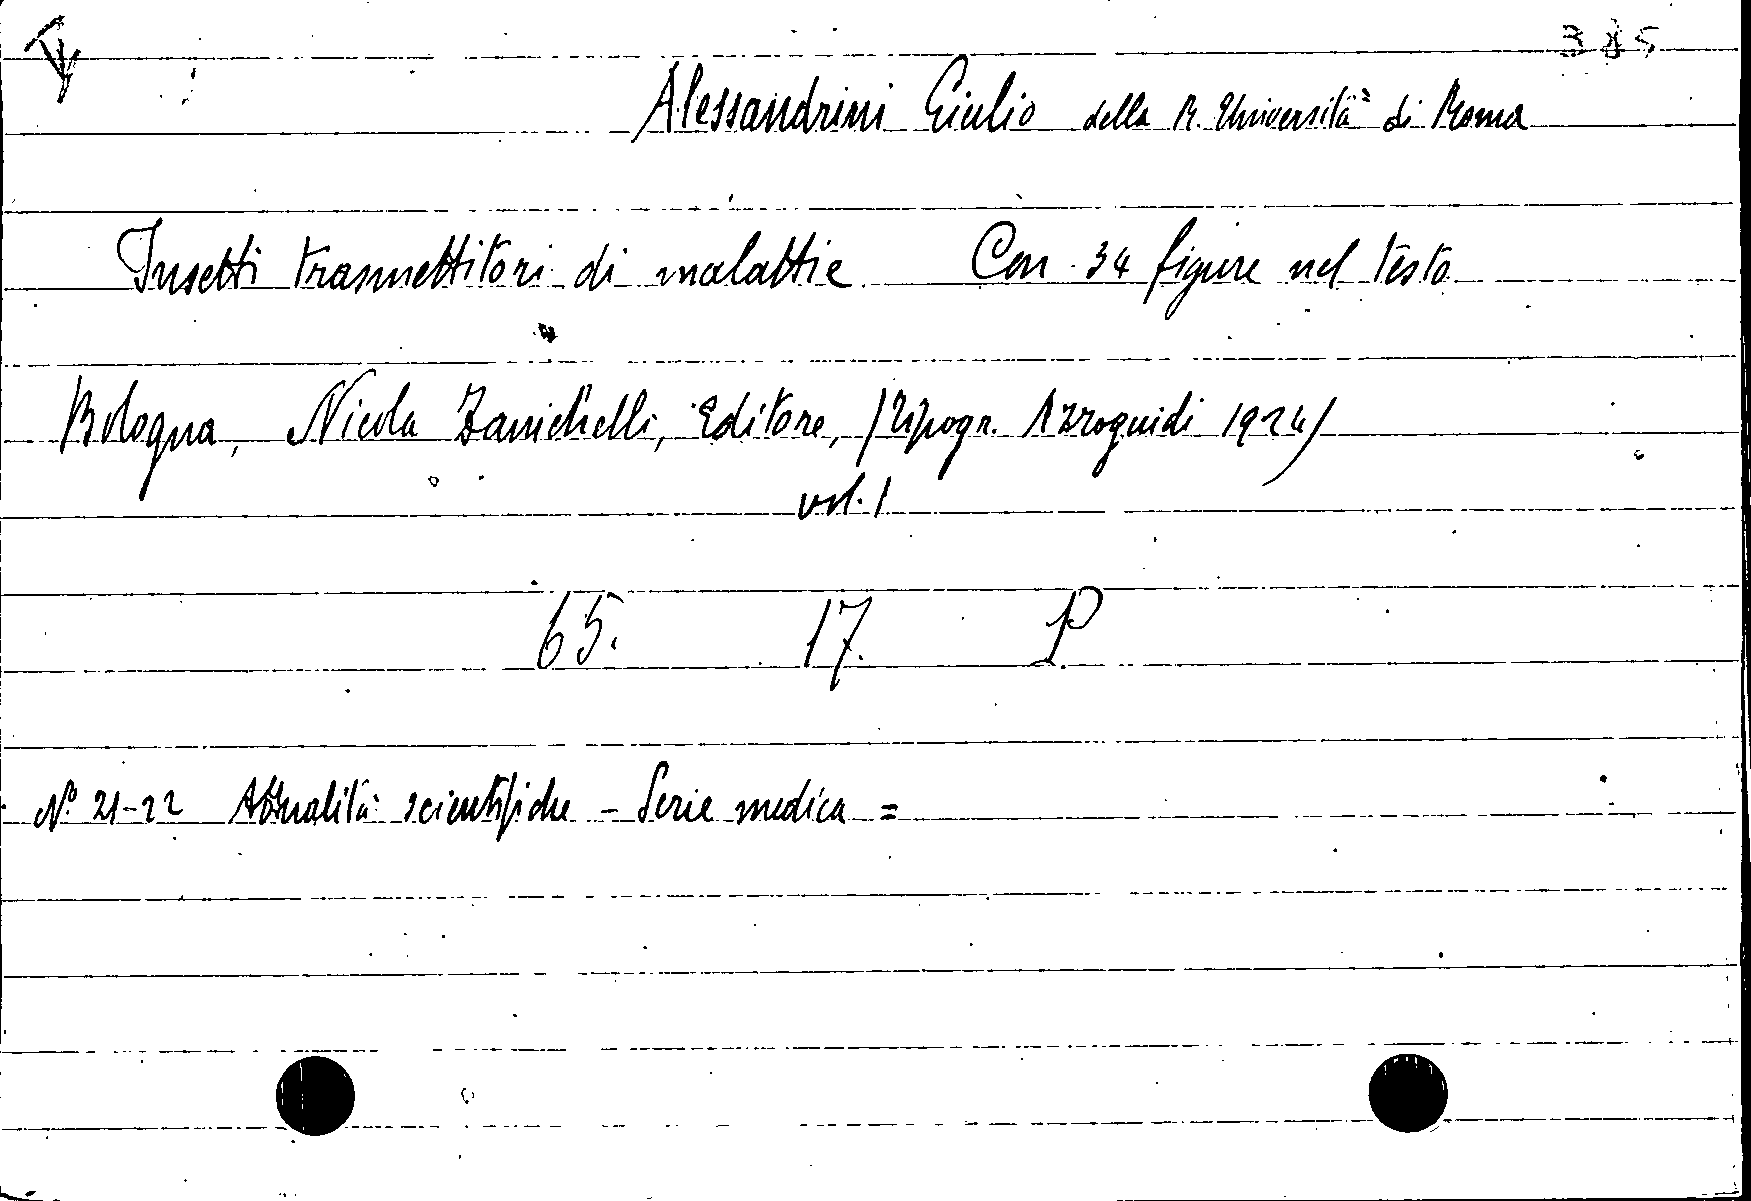 385
Alessandrini Giulio della R. Università di Roma
Insetti trasmettitori di malattie Con 34 figure nel testo
Bologna, Nicola Zanichelli, Editore, (Tipogr. Azzoguidi 1924)
vol. 1
65. 17. P
N° 21-22 Attualità scientifiche - Serie medica =